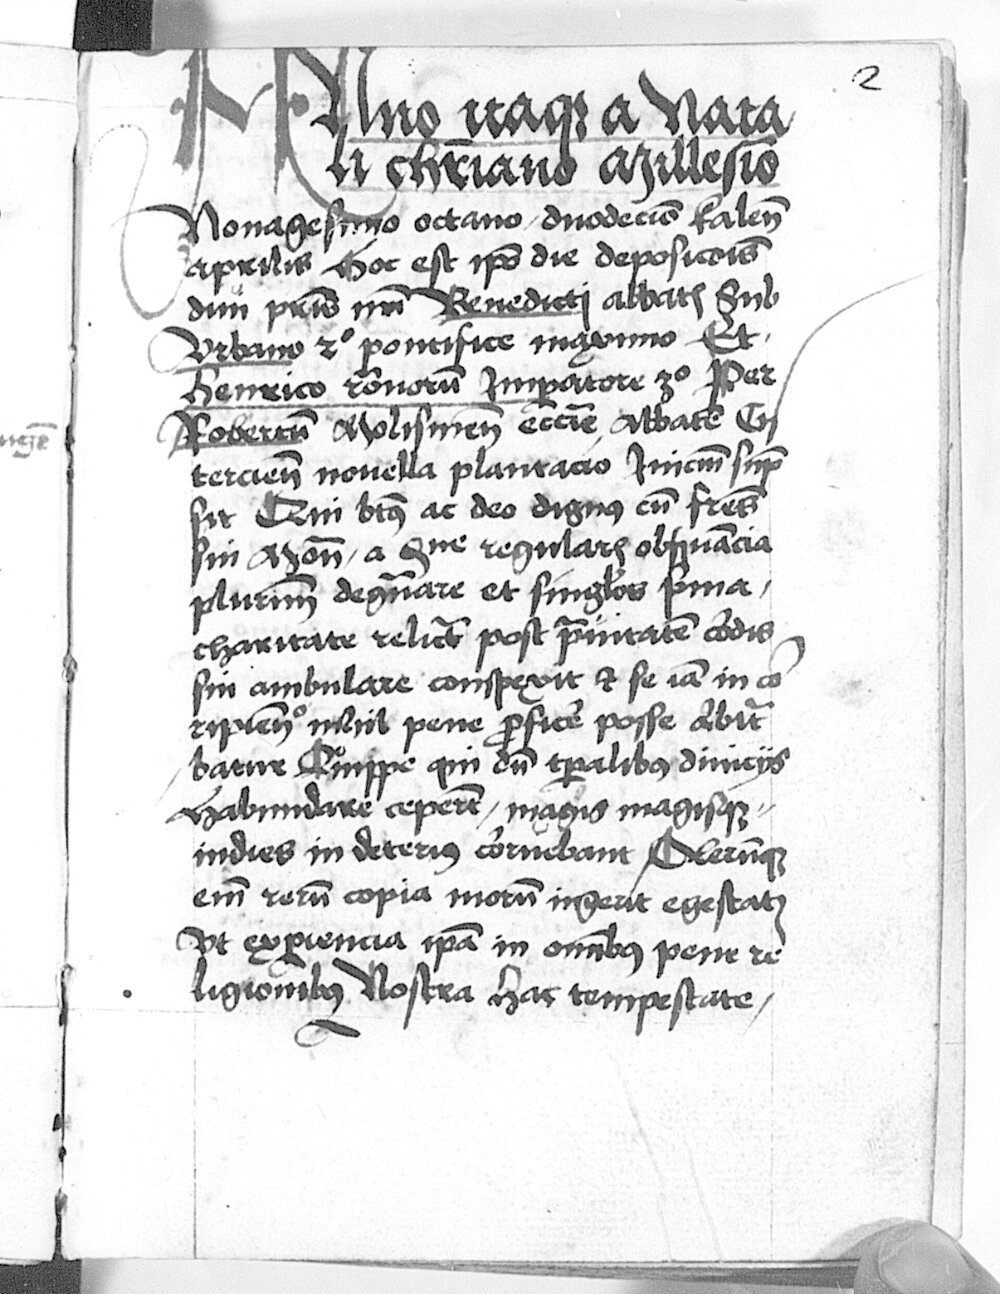 2
Anno itaqꝫ a Nata
li chr̅iano Millesi͞o
Nonagesimo octavo / duodeci͞o kalen̄
aprilis hoc est ip̄o die deposico̅is
diui pr̅is nr̅i Benedicti abbatꝭ Sub
Vrbano 2º pontifice maximo Et
henrico ro̅norū Imperatore 3º Per
Robertū Molismen̄ eccl̅ie Abbatē Cis
tercien̄ novella plantacio Iniciū sup̄
sit Qui bt̅us ac deo dignus cū fr̅es
sui Mon̄ / a Sue regularꝭ obsȩrua̅cia
plurimū degen̄are et singlōs prima /
charitate relict̄ post p̅uitatē cordis
sui ambulare conspexit & se iā in co
ripien̄º nihil pene p̱ficē posse arbitr̄
batur Quippe qui dū tp̅alibus diuicijs
habundare ceper̄t / magis magisqꝫ
indies in deterius cōruebant Plerūqꝫ
em̄ rerū copia morū ingerit egestatꝭ
Vt exp̱iencia ip̅a in om̅ibus pene re
ligionibus Nostra hac tempestate /